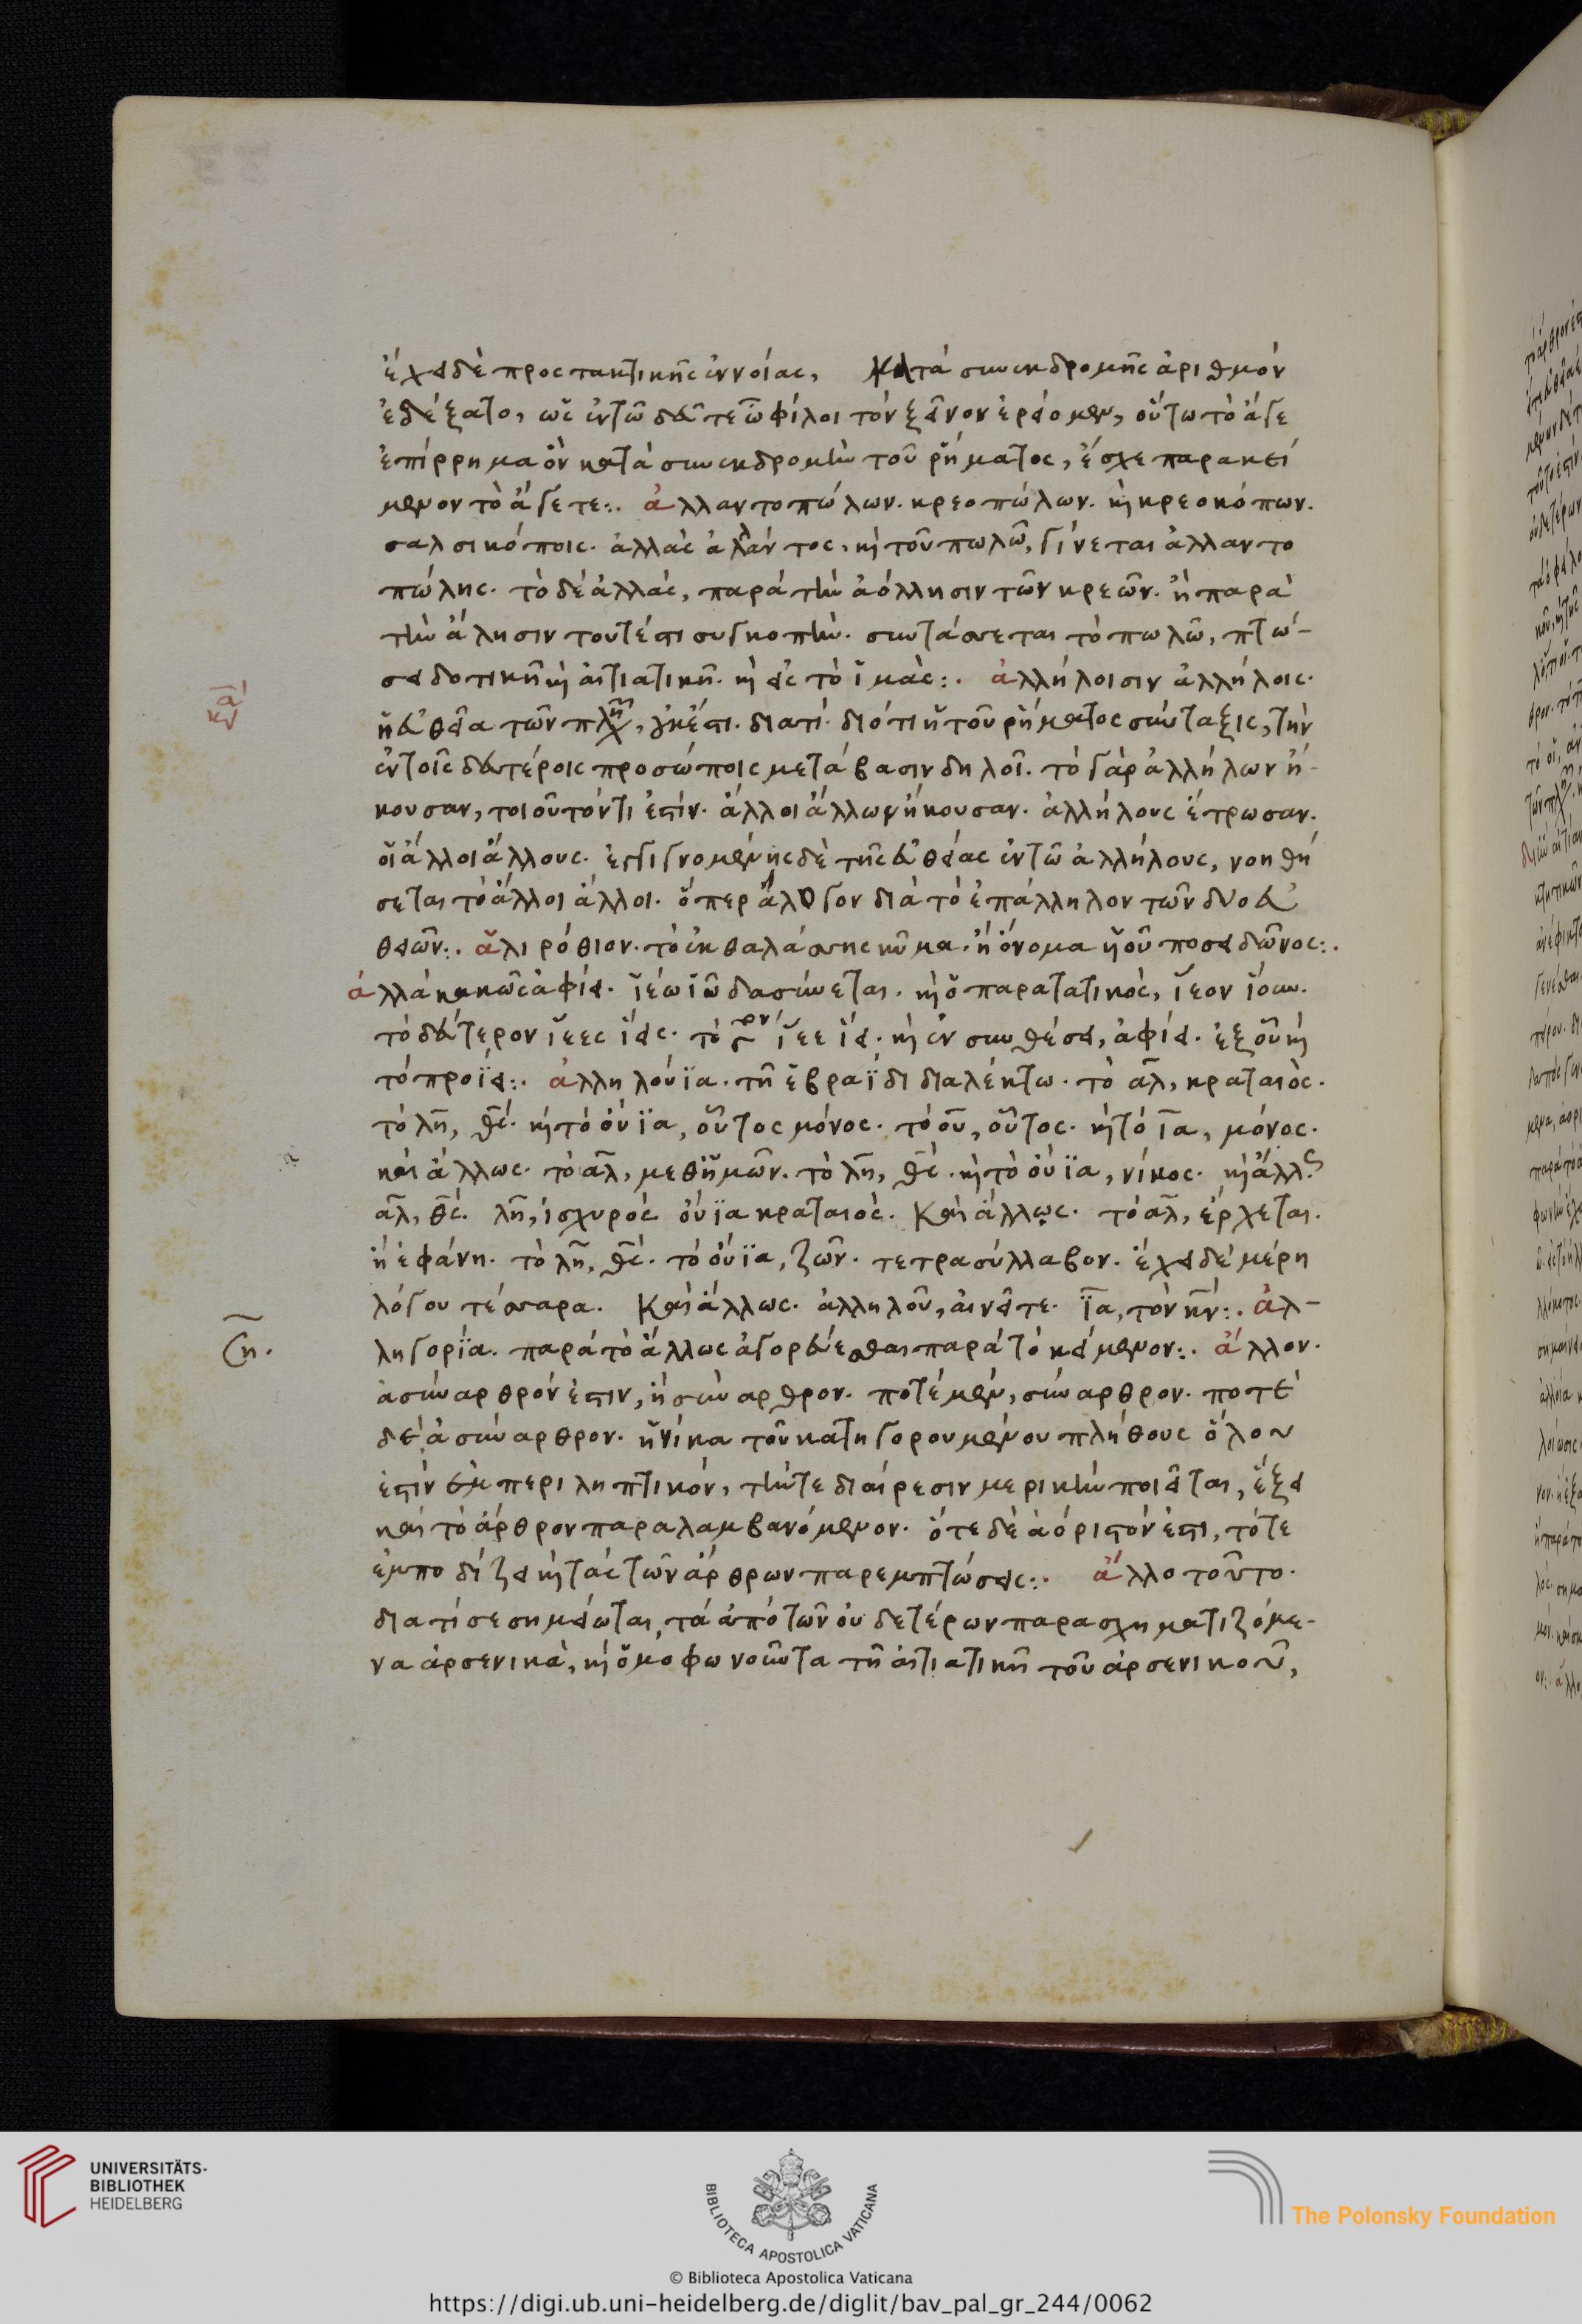 ἔχει δὲ προστακτικῆς ἐννοίας, κατὰ συνεκδρομῆς ἀριθμὸν
ἐδέξατο, ὡς ἐν τῶ δεῦτε ὦ φίλοι τὸν ξεῖνον ἐρώμεν, οὕτω τὸ ἄγε
ἐπίρρημα ὂν κατὰ συνεκδρομὴν τοῦ ῥήματος, ἔσχε παρακεί
μενον τὸ ἄγετε:. ἀλλαντοπώλων. κρεοπώλων. κὴ κρεοκόπων.
σαλσικόποις. ἀλλὰς ἀλλάντος, κὴ τοῦ πωλῶ, γίνεται ἀλλαντο
πώλης. τὸ δὲ ἀλλὰς, παρὰ τὴν ἀόλλησιν τῶν κρεῶν. ἢ παρὰ
τὴν ἄλησιν τουτέστι συγκοπήν. συντάσσεται τὸ πωλῶ, πτώ-
σει δοτικῆ κὴ αἰτιατικῆ. κὴ εἰς τὸ ἱμὰς:. ἀλλήλοισιν ἀλλήλοις.
ἡ εὐθεῖα τῶν πλη, οὐκ ἔστι. διατί. διότι ἡ τοῦ ῥήματος σύνταξις, τὴν
ἐν τοῖς δευτέροις προσώποις μετάβασιν δηλοῖ. τὸ γὰρ ἀλλήλων ἤ-
κουσαν, τοιοῦτόν τι ἐστίν. ἄλλοι ἄλλων ἤκουσαν. ἀλλήλους ἔτρωσαν.
οἱ ἄλλοι ἄλλους. ἐγγιγνομένης δὲ τῆς εὐθείας ἐν τῶ ἀλλήλους, νοηθή
σεται τὸ ἄλλοι ἄλλοι. ὅπερ ἄλογον διὰ τὸ ἐπάλληλον τῶν δύο εὐ
θειῶν:. ἁλιρόθιον. τὸ ἐκ θαλάσσης κῦμα. ἢ ὄνομα υἱοῦ ποσειδῶνος:.
ἀλλὰ κακῶς ἀφίει. ἱέω ἱῶ δασύνεται. κὴ ὁ παρατατικὸς, ἵεον ἵουν.
τὸ δεύτερον ἵεες ἵεις. τὸ γον ἵεε ἵει. κὴ ἐν συνθέσει, ἀφίει. ἐξ οὗ κὴ
τὸ προΐει:. ἀλληλούϊα. τῆ ἑβραΐδι διαλέκτω. τὸ αλ, κραταιὸς.
τὸ λη, θς. κὴ τὸ οὐϊα, οὗτος μόνος. τὸ ου, οὗτος. κὴ τὸ ια, μόνος.
καὶ ἄλλως. τὸ αλ, μεθ ἡμῶν. τὸ λη, θς. κὴ τὸ οὐϊα, νίκος. κὴ ἄλλς
αλ, θς. λη, ἰσχυρὸς οὐϊα κραταιὸς. Καὶ ἄλλως. τὸ αλ, ἔρχεται.
ἢ ἐφάνη. τὸ λη, θς. τὸ οὐϊα, ζῶν. τετρασύλλαβον. ἔχει δὲ μέρη
λόγου τέσσαρα. Καὶ ἄλλως. ἀλληλοῦ, αἰνεῖτε. ϊα, τὸν κν:. ἀλ-
ληγορία. παρὰ τὸ ἄλλως ἀγορεύεσθαι παρὰ τὸ κείμενον:. ἄλλον.
ἀσύναρθρόν ἐστιν, ἢ σύναρθρον. ποτὲ μὲν, σύναρθρον. ποτὲ
δὲ ἀσύναρθρον. ἡνίκα τοῦ κατηγορουμένου πλήθους ὅλου
ἐστὶν ἐμπεριληπτικόν, τήν τε διαίρεσιν μερικὴν ποιεῖται, ἕξει
καὶ τὸ ἄρθρον παραλαμβανόμενον. ὅτε δὲ ἀόριστόν ἐστι, τότε
ἐμποδίζει κὴ τὰς τῶν ἄρθρων παρεμπτώσεις:. ἄλλο τοῦτο.
διατί σεσημείωται, τὰ ἀπὸ τῶν οὐδετέρων παρασχηματιζόμε-
να ἀρσενικὰ, κὴ ὁμοφωνοῦντα τῆ αἰτιατικῆ τοῦ ἀρσενικοῦ,
UNIVERSITÄTS-
BIBLIOTHEK
HEIDELBERG
BIBLIOTECA APOSTOLICA VATICANA
The Polonsky Foundation
© Biblioteca Apostolica Vaticana
https://digi.ub.uni-heidelberg.de/diglit/bav_pal_gr_244/0062